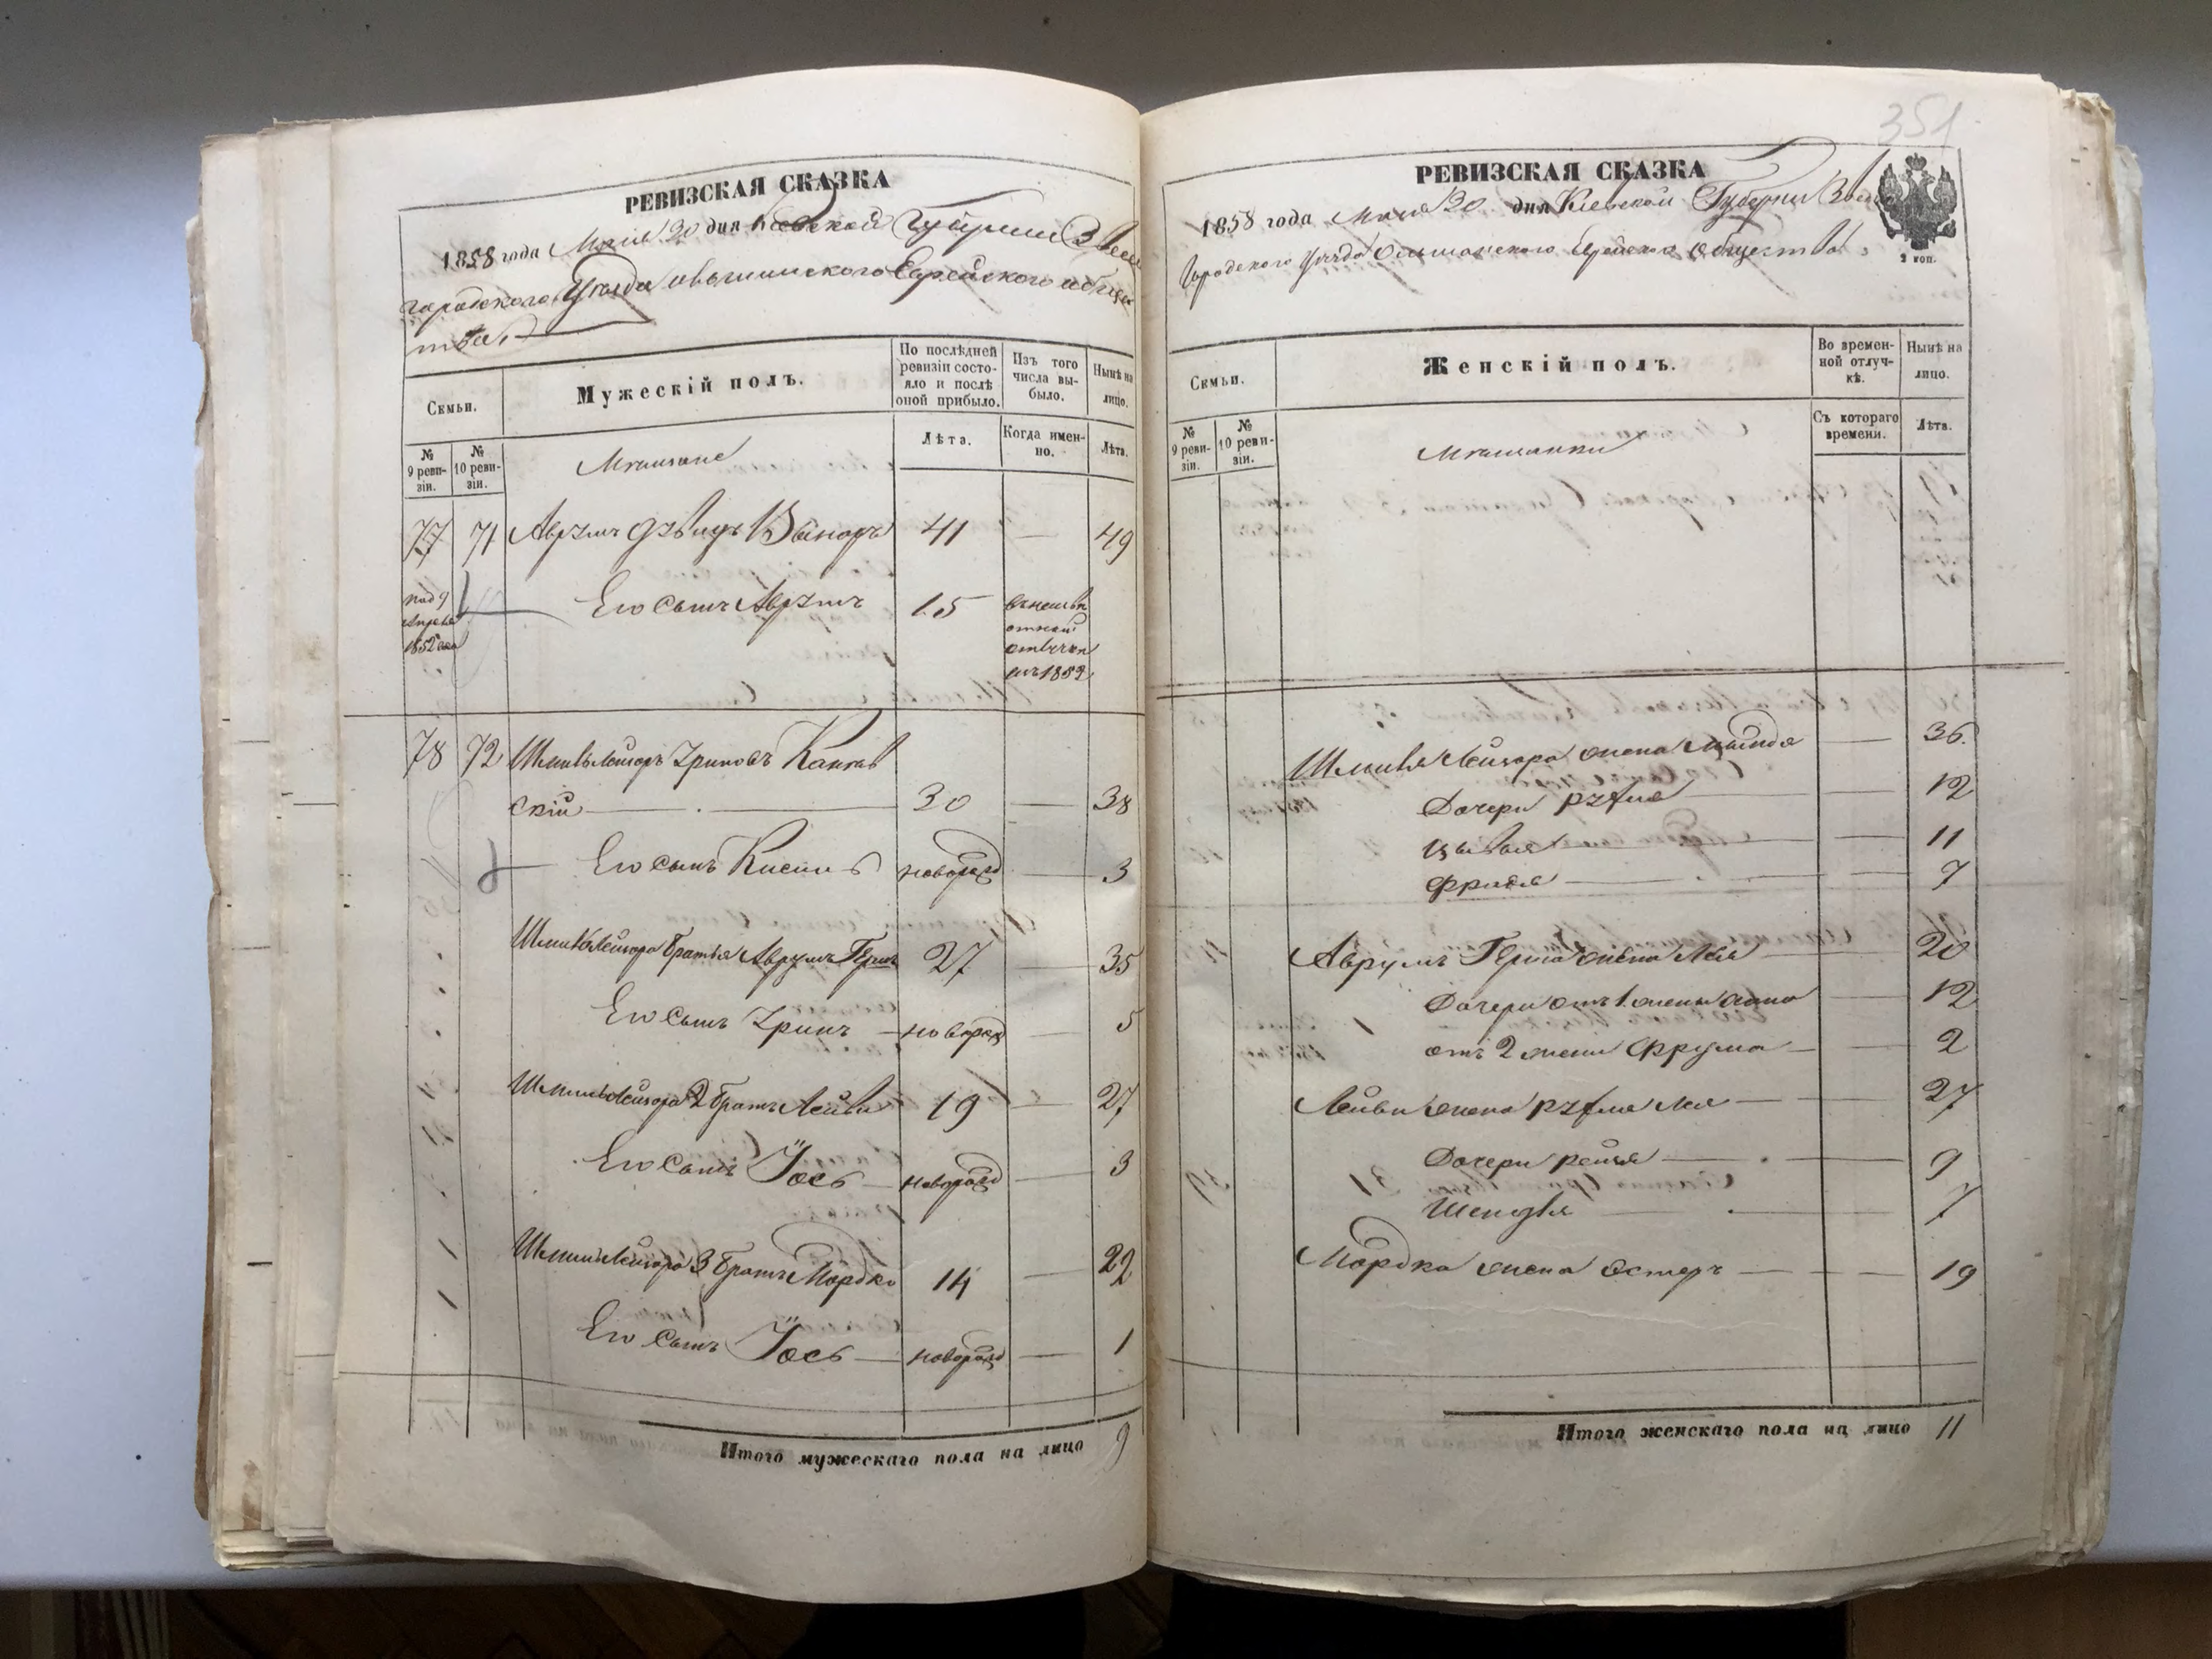 РЕВИЗСКАЯ СКАЗКА
1858 года Мая 30 дня Киевской Губернии Звени
городского Уезда Ольшанского Еврейского общес
тва
Семьи.
Мужескій полъ.
По послѣдней ревизіи состояло и послѣ оной прибыло.
Изъ того числа выбыло.
Нынѣ на лицо.
№ 9 ревизіи.
№ 10 ревизіи.
Мещане
Лѣта.
Когда именно.
Лѣта.
77 71 Аврумъ 41 — 49
Его сынъ Аврумъ 15 1852
1852
78 72 Шмиль Лейзоръ Каневский 30 — 38
Его сынъ новорожд — 3
Шмиль Лейзора братья Аврумъ Герш 27 — 35
Его сынъ новорожд — 5
Шмиль Лейзора 2 братъ Лейба 19 — 27
Его сынъ Іось новорожд — 3
Шмиль Лейзора 3 братъ Мордко 14 — 22
Его сынъ Іось новорожд — 1
Итого мужескаго пола на лицо 9
351
РЕВИЗСКАЯ СКАЗКА
1858 года Мая 30 дня Киевской Губерніи Звени
городского Уезда Ольшанского Еврейского общества
2 коп.
Семьи.
Женскій полъ.
Во временной отлучкѣ.
Нынѣ на лицо.
№ 9 ревизіи.
№ 10 ревизіи.
Мещанки
Съ котораго времени.
Лѣта.
Шмиля Лейзора жена — 36
Дочери — 12
— 11
Фрида — 7
Аврумъ Герша жена Лея — 20
Дочери отъ 1 жены — 12
отъ 2 жены Фрума — 2
Лейбы жена Лея — 27
Дочери — 9
Шендля — 7
Мордка жена Эстеръ — 19
Итого женскаго пола на лицо 11